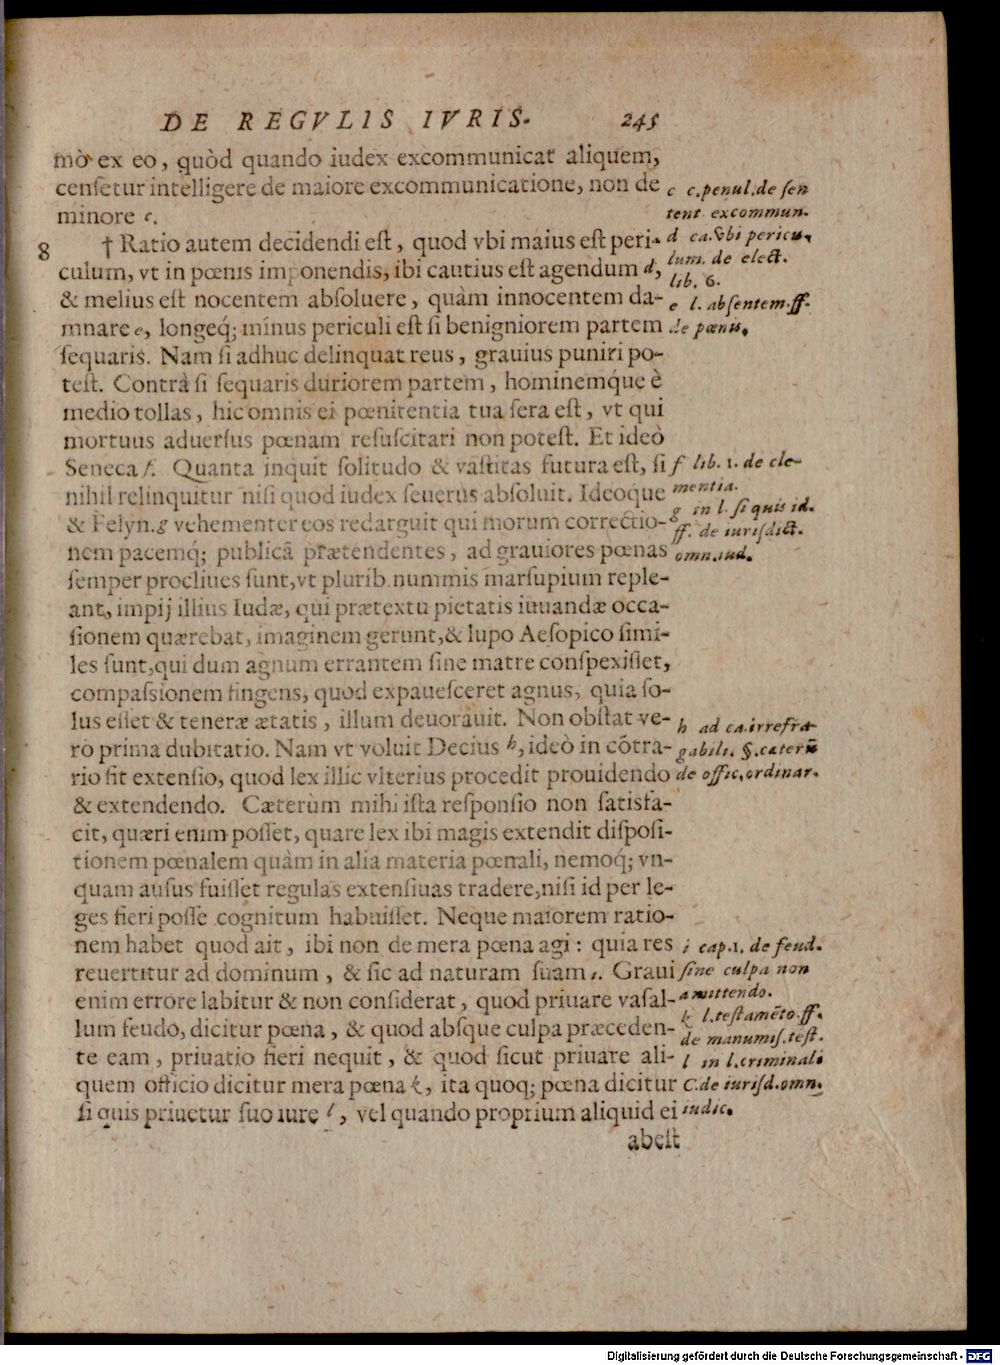 DE REGVLIS IVRIS. 245
mò ex eo, quòd quando iudex excommunicat aliquem,
censetur intelligere de maiore excommunicatione, non de
minore c.
8 † Ratio autem decidendi est, quod vbi maius est peri-
culum, vt in pœnis imponendis, ibi cautius est agendum d,
& melius est nocentem absoluere, quàm innocentem da-
mnare e, longeq́; minus periculi est si benigniorem partem
sequaris. Nam si adhuc delinquat reus, grauius puniri po-
test. Contrà si sequaris duriorem partem, hominemq́ue è
medio tollas, hic omnis ei pœnitentia tua sera est, vt qui
mortuus aduersus pœnam resuscitari non potest. Et ideò
Seneca f. Quanta inquit solitudo & vastitas futura est, si
nihil relinquitur nisi quod iudex seuerus absoluit. Ideoque
& Felyn. g vehementer eos redarguit qui morum correctio-
nem pacemq́; publicā prætendentes, ad grauiores pœnas
semper procliues sunt, vt plurib. nummis marsupium reple-
ant, impij illius Iudæ, qui prætextu pietatis iuuandæ occa-
sionem quærebat, imaginem gerunt, & lupo Aesopico simi-
les sunt, qui dum agnum errantem sine matre conspexisset,
compassionem fingens, quod expauesceret agnus, quia so-
lus esset & teneræ ætatis, illum deuorauit. Non obstat ve-
rò prima dubitatio. Nam vt voluit Decius h, ideò in cōtra-
rio fit extensio, quod lex illic vlterius procedit prouidendo
& extendendo. Cæterùm mihi ista responsio non satisfa-
cit, quæri enim posset, quare lex ibi magis extendit disposi-
tionem pœnalem quàm in alia materia pœnali, nemoq́; vn-
quam ausus fuisset regulas extensiuas tradere, nisi id per le-
ges fieri posse cognitum habuisset. Neque maiorem ratio-
nem habet quod ait, ibi non de mera pœna agi: quia res
reuertitur ad dominum, & sic ad naturam suam i. Graui
enim errore labitur & non considerat, quod priuare vasal-
lum feudo, dicitur pœna, & quod absque culpa præceden-
te eam, priuatio fieri nequit, & quod sicut priuare ali-
quem officio dicitur mera pœna k, ita quoq; pœna dicitur
si quis priuetur suo iure l, vel quando proprium aliquid ei
abest
c c. penul. de sen
tent excommun.
d ca. vbi pericu,
lum. de elect.
lib. 6.
e l. absentem. ff.
de pœnis.
f lib. 1. de cle-
mentia.
g in l. si quis id.
ff. de iurisdict.
omn. iud.
h ad ca. irrefra-
gabili. §. caterū
de offic. ordinar.
i cap. 1. de feud.
sine culpa non
amittendo.
k l. testamēto ff.
de manumis. test.
l in l. criminali
C. de iurisd. omn.
iudic.
Digitalisierung gefördert durch die Deutsche Forschungsgemeinschaft - DFG